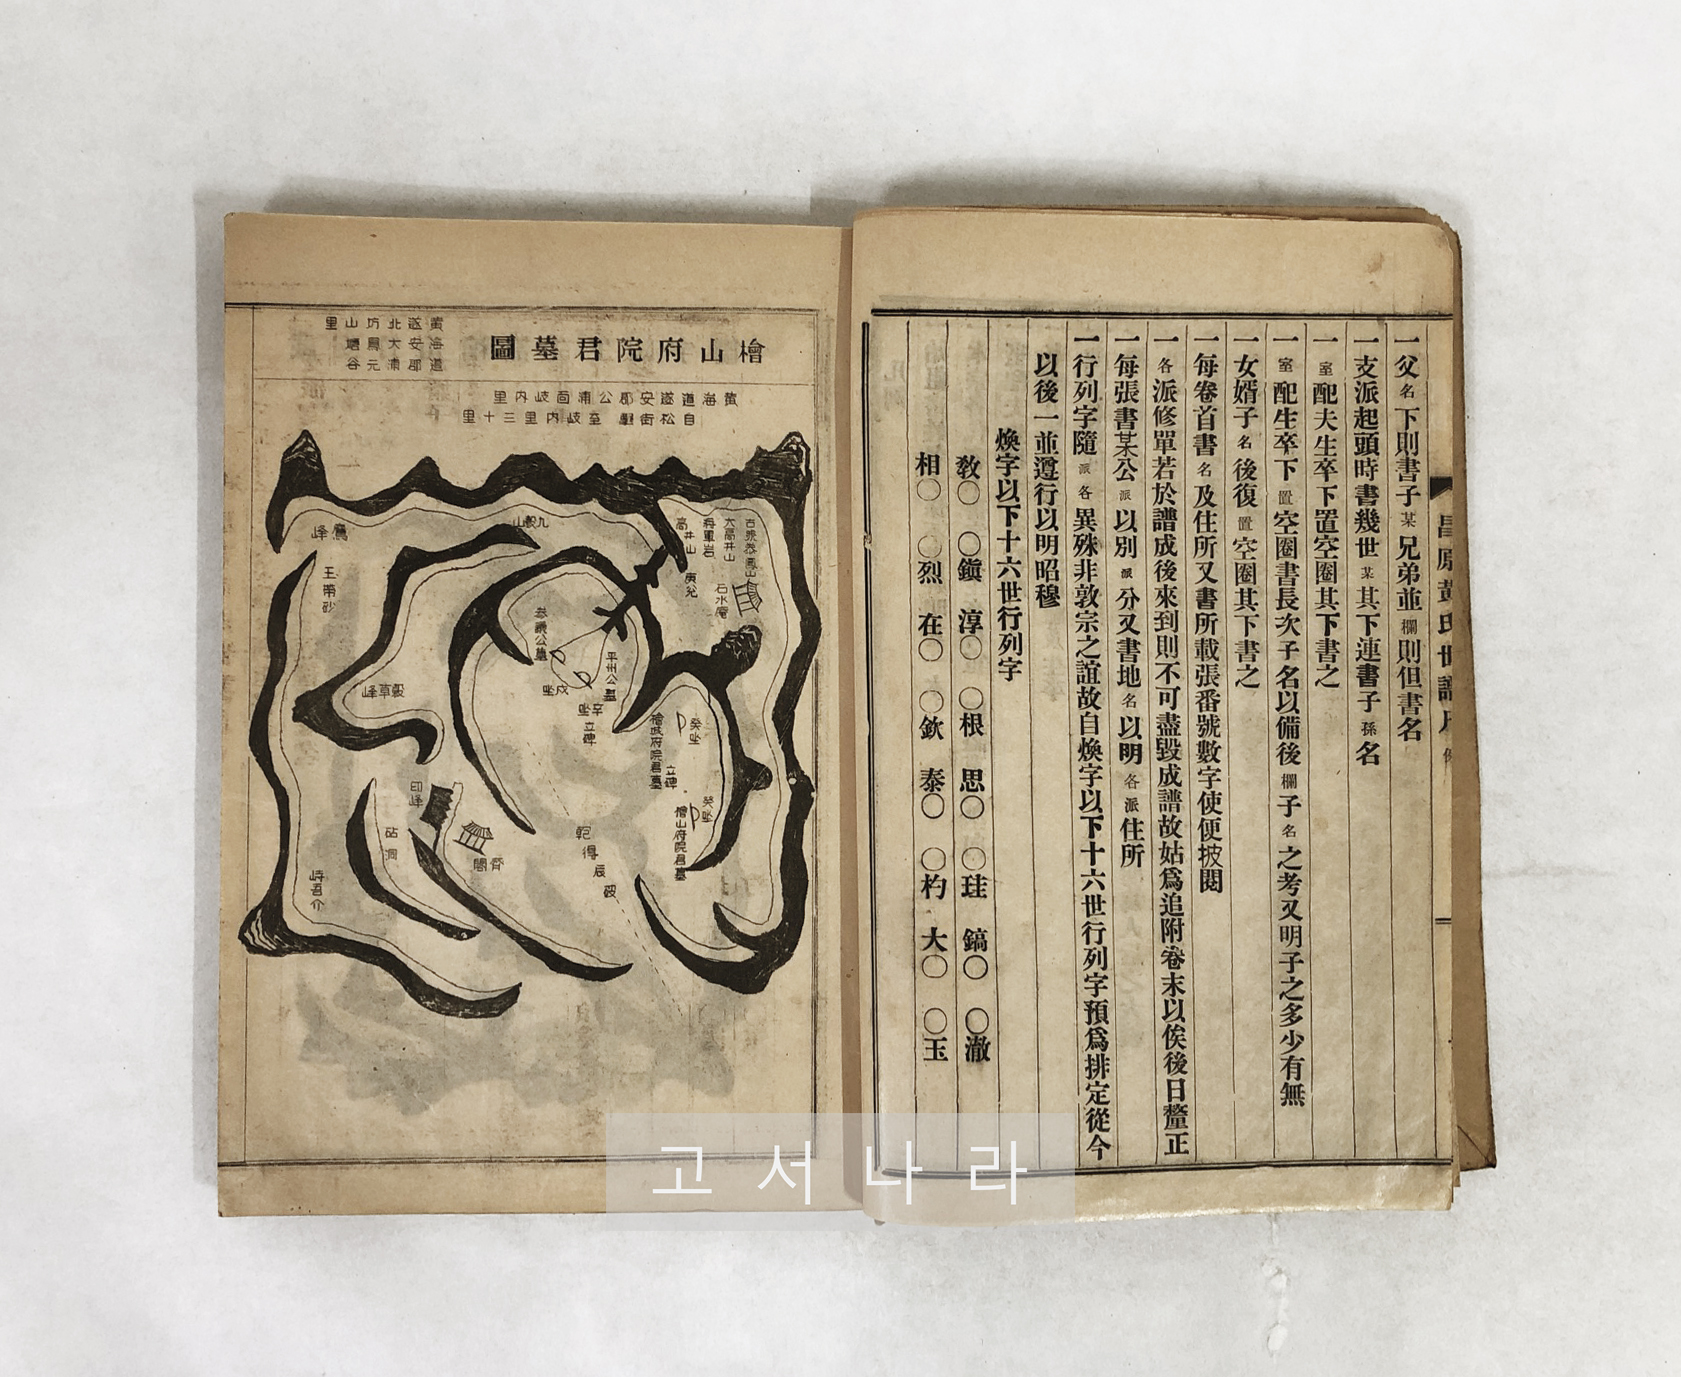 一父名下則書子某兄弟並欄則但書名
一支派起頭時書幾世某其下連書子孫名
一室配夫生卒下置空圈其下書之
一室配生卒下置空圈書長次子名以備後欄子名之考又明子之多少有無
一女婿子名後復置空圈其下書之
一每卷首書名及住所又書所載張番號數字使便披閱
一各派修單若於譜成後來到則不可盡毀成譜故姑爲追附卷末以俟後日釐正
一每張書某公派以別派分又書地名以明各派住所
一行列字隨派各異殊非敦宗之誼故自煥字以下十六世行列字預爲排定從今
以後一並遵行以明昭穆
煥字以下十六世行列字
敎○ ○鎭 淳○ ○根 思○ ○珪 鎬○ ○澈
相○ ○烈 在○ ○欽 泰○ ○杓 大○ ○玉
昌原黃氏世譜
檜山府院君墓圖
黃海道
遂安郡
北大浦
坊鳳元
山塘谷
里
黃海道遂安郡公浦面岐內里
自松街 至岐內里三十里
鷹峰
九
山
高井山
將軍岩
太高井山
庚兌
石水庵
玉帶砂
參議公墓
戌坐
平州公墓
辛坐
立碑
癸坐
檜城府院君墓
立碑
癸坐
檜山府院君墓
穀草峰
印峰
砧洞
齊閣
乾得辰破
고서나라